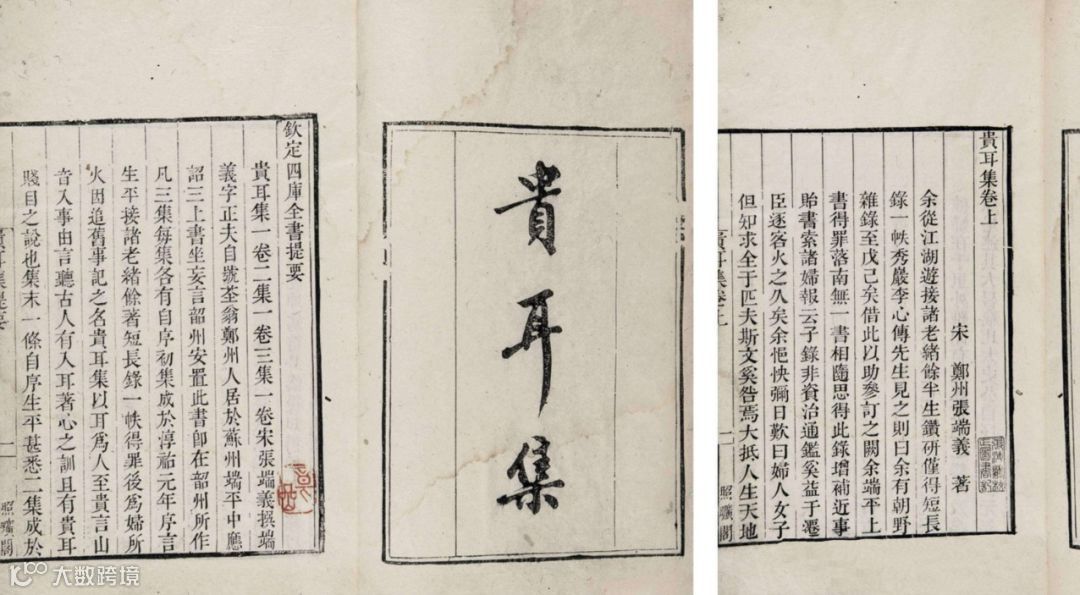 貴耳集
欽定四庫全書提要
貴耳集一卷二集一卷三集一卷宋張端義撰端
義字正夫自號荃翁鄭州人居於蘇州端平中應
詔三上書坐妄言韶州安置此書卽在韶州所作
凡三集每集各有自序初集成於淳祐元年序言
生平接諸老緒餘著短長錄一帙得罪後爲婦所
火因追舊事記之名貴耳集以耳爲人至貴言山
音入事由言聽古人有入耳著心之訓且有貴耳
賤目之說也集末一條自序生平甚悉二集成於
貴耳集提要
一
照曠閣
貴耳集卷上
宋 鄭州張端義 著
余從江湖遊接諸老緒餘半生鑽研僅得短長
錄一帙秀巖李心傳先生見之則曰余有朝野
雜錄至戊己矣借此以助參訂之闕余端平上
書得罪落南無一書相隨思得此錄增補近事
貽書索諸婦報云子錄非資治通鑑奚益于遷
臣逐客火之久矣余悒怏彌日歎曰婦人女子
但知求全于匹夫斯文奚咎焉大抵人生天地
貴耳集卷上
一
照曠閣
大数跨境